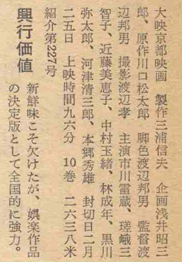 大映京都映画　製作三浦信夫　企画浅井昭三
郎、原作川口松太郎　脚色渡辺邦男　監督渡
辺邦男　撮影渡辺孝　主演市川雷蔵、瑳峨三
智子、近藤美恵子、中村玉緒、林成年、黒川
弥太郎、河津清三郎、本郷秀雄　封切日二月
二五日　上映時間九六分　10巻　二六三八米
紹介第227号
興行価値
新鮮味こそ欠けたが、娯楽作品
の決定版として全国的に強力。